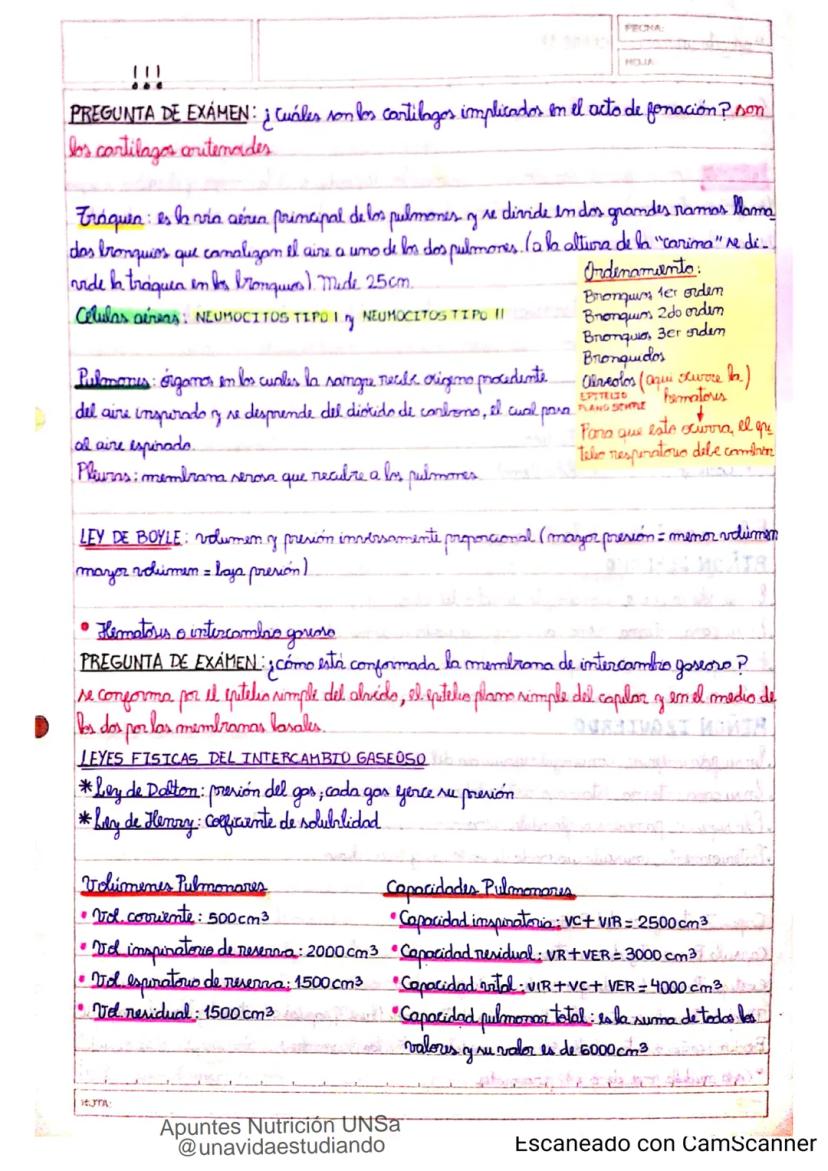 FECHA:
HOJA:
!!!
PREGUNTA DE EXÁMEN: ¿Cuáles son los cartilagos implicados en el acto de fonación? son
los cartilagos aritenoides
Tráquea: es la vía aérea principal de los pulmones y se divide en dos grandes ramas llama
das bronquios que canalizan el aire a uno de los dos pulmones. (a la altura de la "carina" se di-
vide la tráquea en los bronquios). Mide 25cm.
Células aéreas: NEUMOCITOS TIPO I y NEUMOCITOS TIPO II
Ordenamiento:
Bronquios 1er orden
Bronquios 2do orden
Bronquios 3er orden
Bronquiolos
Alveolos (aquí ocurre la)
EPITELIO hematosis
PLANO SIMPLE ↓
Para que esto ocurra, el epi
telio respiratorio debe cambiar
Pulmones: órganos en los cuales la sangre recibe oxígeno procedente
del aire inspirado y se desprende del dióxido de carbono, el cual pasa
al aire espirado.
Pleuras: membrana serosa que recubre a los pulmones
LEY DE BOYLE: volumen y presión inversamente proporcional (mayor presión = menor volúmen
mayor volúmen = baja presión)
• Hematosis o intercambio gaseoso
PREGUNTA DE EXÁMEN: ¿cómo está conformada la membrana de intercambio gaseoso?
se conforma por el epitelio simple del alvéolo, el epitelio plano simple del capilar y en el medio de
los dos por las membranas basales.
LEYES FISICAS DEL INTERCAMBIO GASEOSO
* Ley de Dalton: presión del gas; cada gas ejerce su presión
* Ley de Henry: Coeficiente de solubilidad
Volúmenes Pulmonares
• Vol. corriente: 500cm³
• Vol inspiratorio de reserva: 2000cm³
• Vol. espiratorio de reserva: 1500cm³
• Vol residual: 1500cm³
Capacidades Pulmonares
• Capacidad inspiratoria: VC + VIR = 2500cm³
• Capacidad residual: VR + VER = 3000cm³
• Capacidad vital: VIR + VC + VER = 4000cm³
• Capacidad pulmonar total: es la suma de todos los
valores y su valor es de 6000cm³
NOTA:
Apuntes Nutrición UNSa
@unavidaestudiando
Escaneado con CamScanner